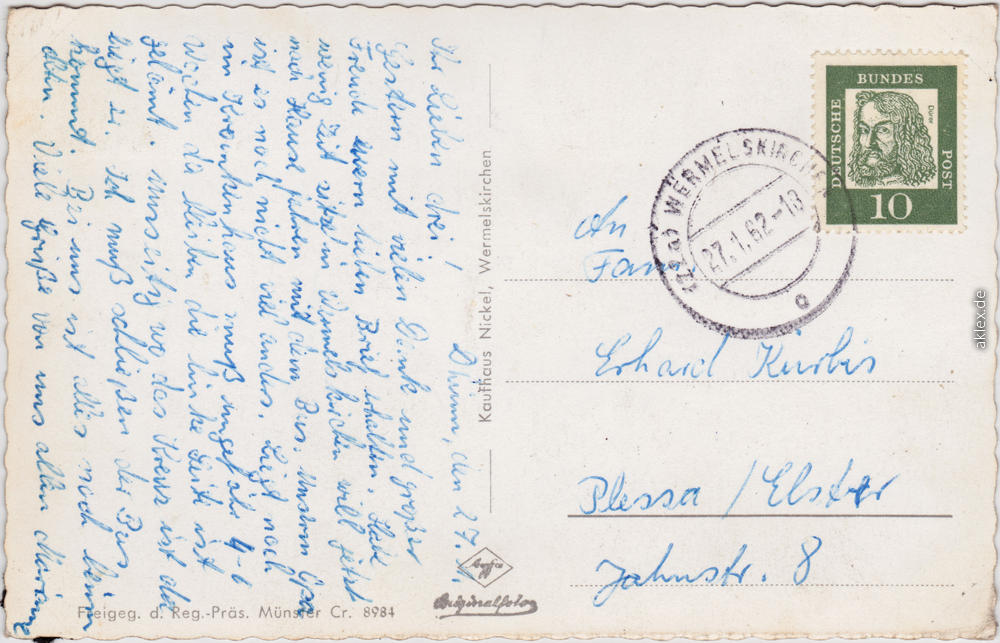 Dhünn, den 27.1.
Ihr Lieben drei!
Gestern mit vielen Dank und großer
Freude euern lieben Brief erhalten. Habe
wenig Zeit sitz in Wermelskirchen will jetzt
nach Hause fahren mit dem Bus. Unserm Opa
ist es noch nicht viel anders. Liegt noch
im Krankenhaus muß ungefähr 4-6
Wochen da bleiben die linke Seite ist
gelähmt. wo das Kreuz ist da
liegt er. Ich muß schließen der Bus
kommt. Bei uns ist alles noch beim
alten. Viele Grüße von uns allen
Kaufhaus Nickel, Wermelskirchen
Originalfoto
Freigeg. d. Reg.-Präs. Münster Cr. 8984
DEUTSCHE
BUNDES
POST
Dürer
10
(22a) WERMELSKIRCHEN
27.1.62-18
An
Fam
Erhard Kürbis
Plessa/Elster
Jahnstr. 8
aklex.de